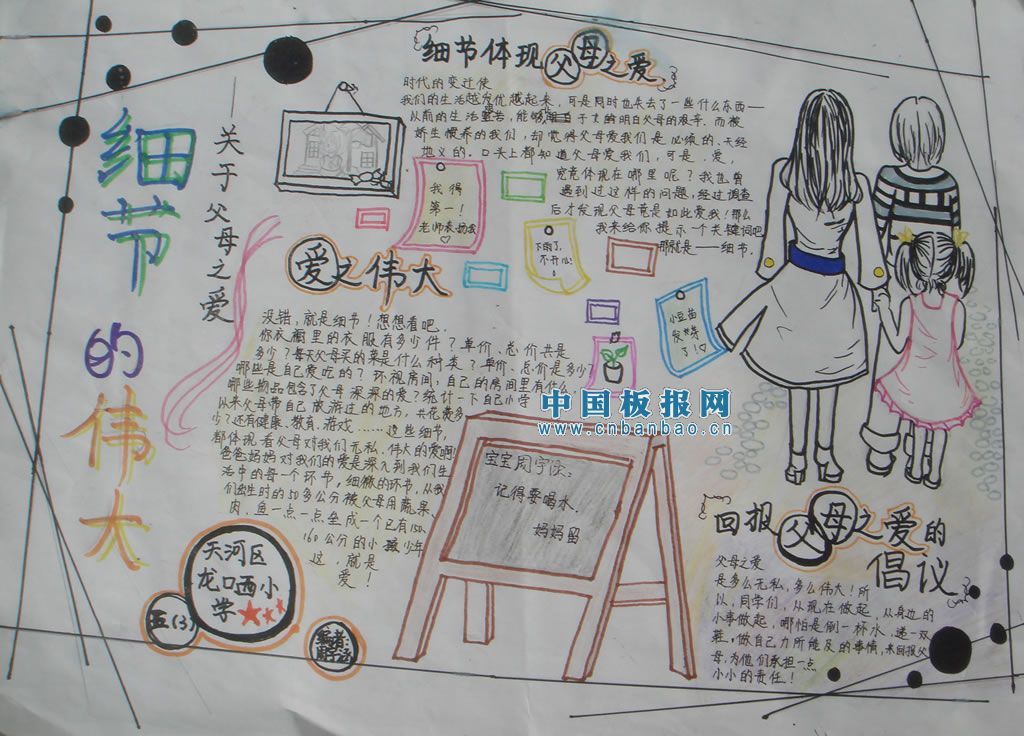 细节的伟大
——关于父母之爱
细节体现父母之爱
时代的变迁使
我们的生活越发优越起来，可是同时也失去了一些什么东西——
从前的生活艰苦，能够
子女明白父母的艰辛。而被
娇生惯养的我们，却觉得父母爱我们是必须的、天经
地义的。口头上都知道父母爱我们，可是，爱，
究竟体现在哪里呢？我也曾
遇到过这样的问题，经过调查
后才发现父母竟是如此爱我！那么
我来给你提示一个关键词吧
那就是——细节。
我得
第一！
老师表扬我
下雨了，
不开心！
小豆苗
发芽
了！
爱之伟大
没错，就是细节！想想看吧，
你衣橱里的衣服有多少件？单价、总价共是
多少？每天父母买的菜是什么种类？单价、总价是多少？
哪些是自己爱吃的？环视房间，自己的房间里有什么
哪些物品包含了父母深深的爱？统计一下自己小学
以来父母带自己旅游过的地方，共花费多
少？还有健康、教育、游戏……这些细节，
都体现着父母对我们无私、伟大的爱啊！
爸爸妈妈对我们的爱是深入到我们生
活中的每一个环节，细微的环节，从我
们出生时的50多公分被父母用蔬果、
肉、鱼一点一点垒成一个已有150、
160公分的小孩少年
这，就是
爱！
中国板报网
www.cnbanbao.cn
宝宝周宇
记得要喝水.
妈妈留
天河区
龙口西小
学
五(3)
编者:
周宇
回报父母之爱的
倡议
父母之爱
是多么无私，多么伟大！所
以，同学们，从现在做起，从身边的
小事做起，哪怕是倒一杯水，递一双
鞋，做自己力所能及的事情，来回报父
母，为他们承担一点
小小的责任！